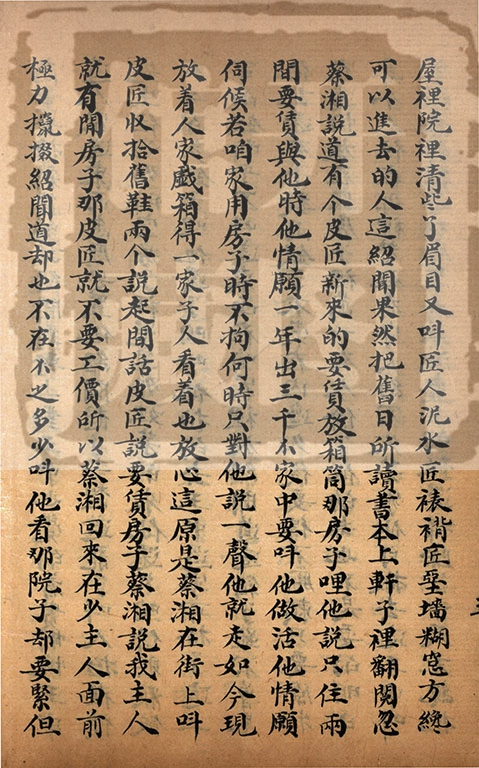 屋裡院裡清些了眉目又呌匠人泥水匠裱褙匠壘墙糊窓方纔
可以進去的人這紹聞果然把舊日所讀書本上軒子裡翻閱忽
蔡湘說道有个皮匠新來的要賃放箱筒那房子哩他說只住兩
間要賃與他時他情願一年出三千不家中要呌他做活他情願
伺候若咱家用房子時不拘何時只對他説一聲他就走如今現
放着人家戯箱得一家子人看着也放心這原是蔡湘在街上呌
皮匠收拾舊鞋兩个説起閒話皮匠説要賃房子蔡湘説我主人
就有閒房子那皮匠就不要工價所以蔡湘回來在少主人面前
極力攛掇紹聞道却也不在不之多少呌他看那院子却要緊但